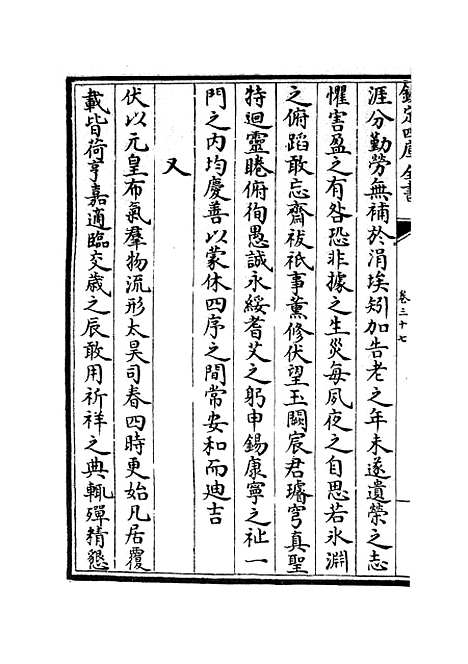 欽定四庫全書
卷三十七
涯分勤勞無補於涓埃矧加告老之年未遂遺榮之志
懼害盈之有咎恐非據之生災每夙夜之自思若氷淵
之俯蹈敢忘齋祓祇事薰修伏望玉闕宸君璿穹真聖
特迴靈睠俯徇愚誠永綏耆艾之躬申錫康寧之祉一
門之内均慶善以蒙休四序之間常安和而迪吉
又
伏以元皇布氣羣物流形太昊司春四時更始凡居覆
載皆荷亨嘉適臨交歲之辰敢用祈祥之典輒殫精懇